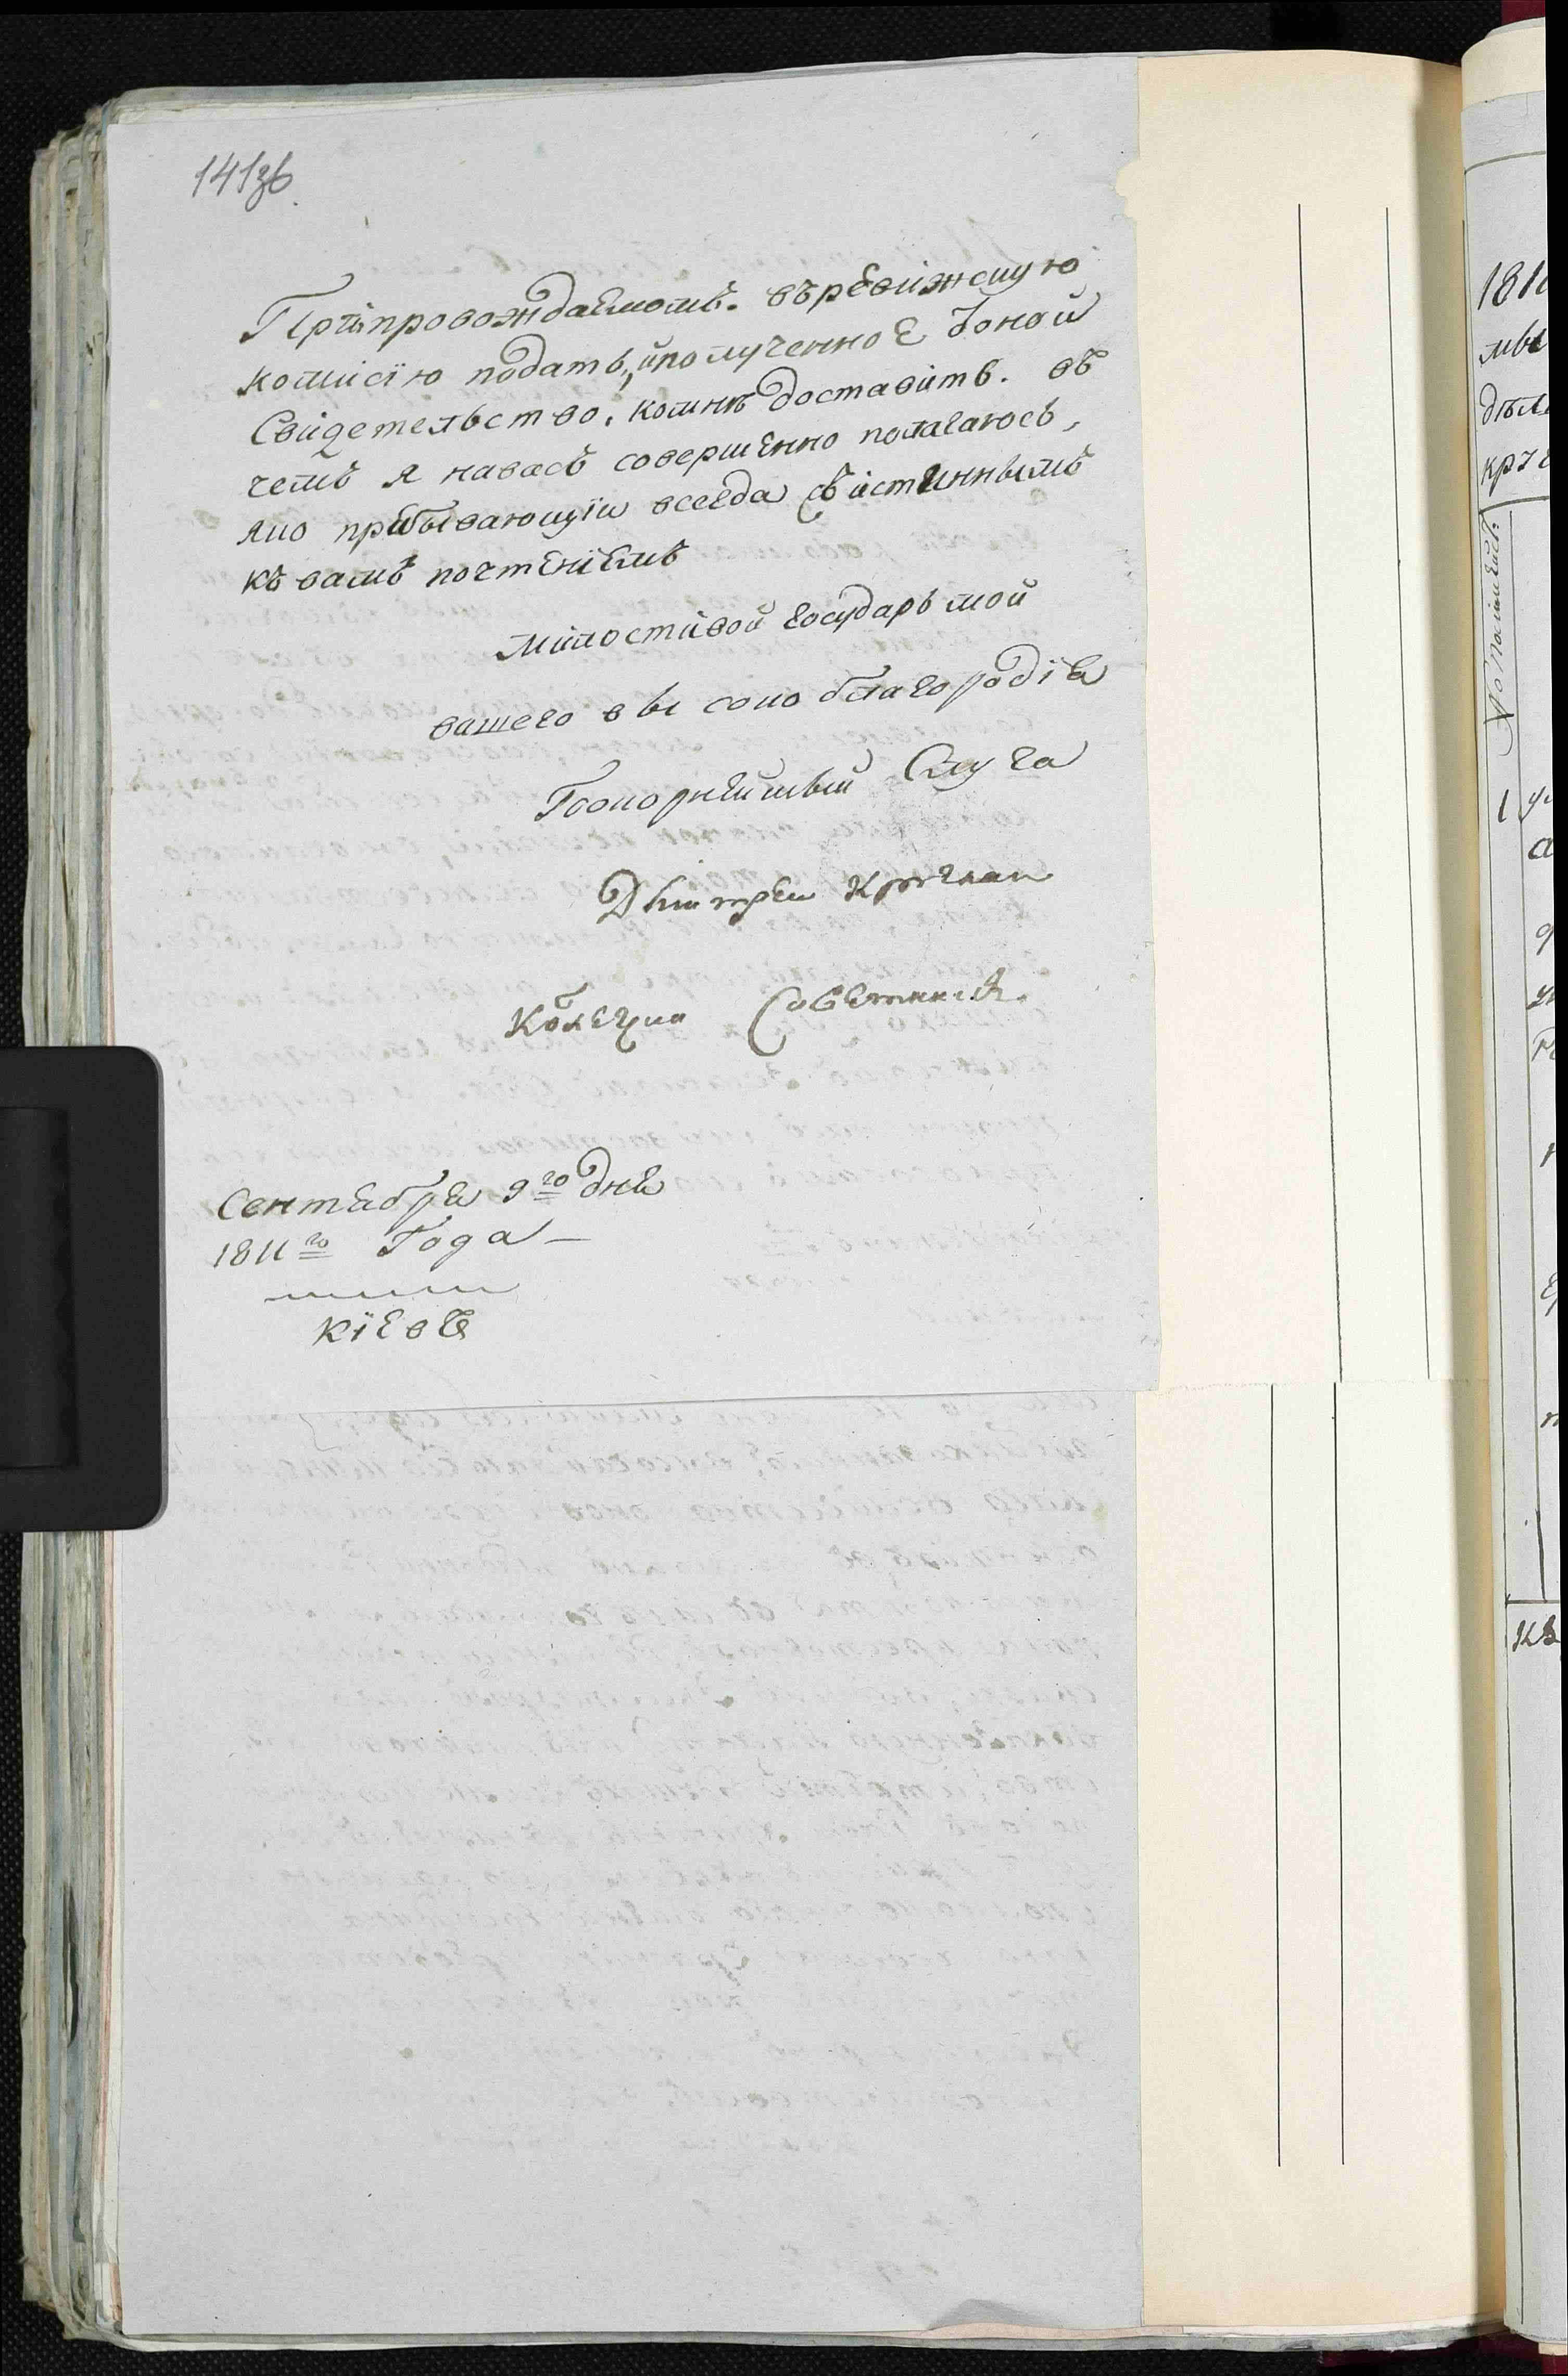 141зв
Припровождаемомъ. въревижскую
комисїю подать, иполученное ѿоной
Свидетельство, комнѣ доставить. въ
чемъ я навасъ совершенно полагаюсь,
яко прибывающїи всегда съ истиннымъ
къ вамъ почтенїемъ
милостивой государь мой
вашего высокоблагородїя
Покорнейшый Слуга
Дмитреи
Колежки Советник
Сентября 9го дня
1811го Года —
кїевъ
181
мы
дѣл
1
къ